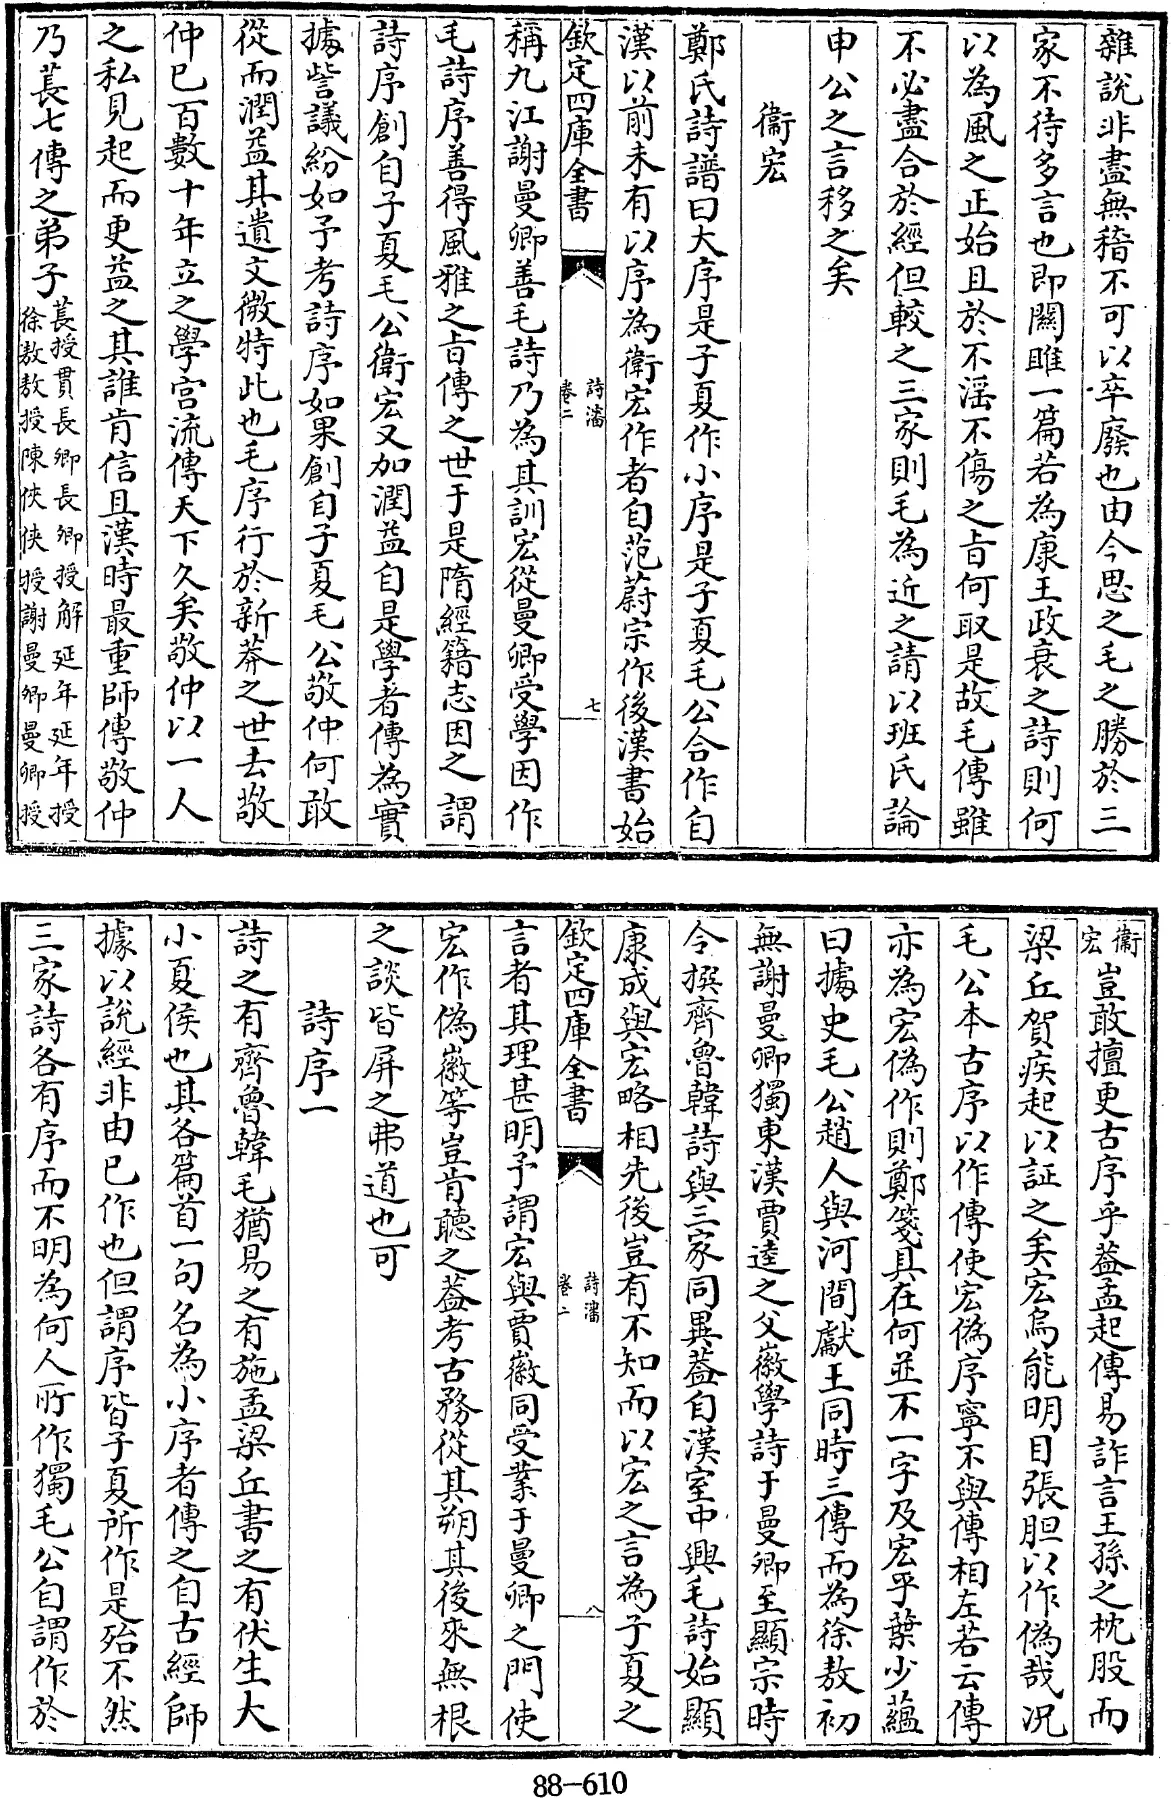 雜說非盡無稽不可以卒廢也由今思之毛之勝於三
家不待多言也即關雎一篇若為康王政衰之詩則何
以為風之正始且於不淫不傷之旨何取是故毛傳雖
不必盡合於經但較之三家則毛為近之請以班氏論
申公之言移之矣
衞宏
鄭氏詩譜曰大序是子夏作小序是子夏毛公合作自
漢以前未有以序為衛宏作者自范蔚宗作後漢書始
欽定四庫全書
詩瀋
卷二
七
稱九江謝曼卿善毛詩乃為其訓宏從曼卿受學因作
毛詩序善得風雅之旨傳之世于是隋經籍志因之謂
詩序創自子夏毛公衛宏又加潤益自是學者傳為實
據訾議紛如予考詩序如果創自子夏毛公敬仲何敢
從而潤益其遺文微特此也毛序行於新莽之世去敬
仲已百數十年立之學宫流傳天下久矣敬仲以一人
之私見起而更益之其誰肯信且漢時最重師傳敬仲
乃萇七傳之弟子萇授貫長卿長卿授解延年延年授
徐敖敖授陳俠俠授謝曼卿曼卿授
衞
宏
豈敢擅更古序乎蓋孟起傳易詐言王孫之枕股而
梁丘賀疾起以証之矣宏烏能明目張胆以作偽哉况
毛公本古序以作傳使宏偽序寧不與傳相左若云傳
亦為宏偽作則鄭箋具在何並不一字及宏乎葉少蘊
曰據史毛公趙人與河間獻王同時三傳而為徐敖初
無謝曼卿獨東漢賈逵之父徽學詩于曼卿至顯宗時
令撰齊魯韓詩與三家同異蓋自漢室中興毛詩始顯
康成與宏略相先後豈有不知而以宏之言為子夏之
欽定四庫全書
詩瀋
卷二
八
言者其理甚明予謂宏與賈徽同受業于曼卿之門使
宏作偽徽等豈肯聽之蓋考古務從其朔其後來無根
之談皆屏之弗道也可
詩序一
詩之有齊魯韓毛猶易之有施孟梁丘書之有伏生大
小夏侯也其各篇首一句名為小序者傳之自古經師
據以說經非由已作也但謂序皆子夏所作是殆不然
三家詩各有序而不明為何人所作獨毛公自謂作於
88-610